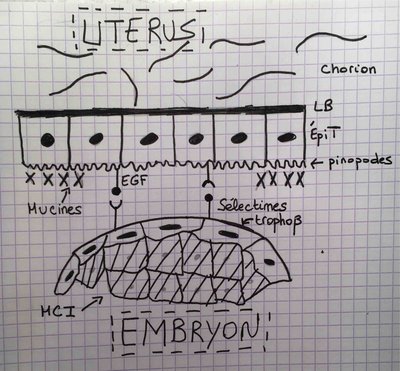 UTERUS
Chorion
LB
ÉpiT
pinopodes
X X X X
EGF
X X X X
Mucines
Sélectines
trophoβ
MCI
EMBRYON